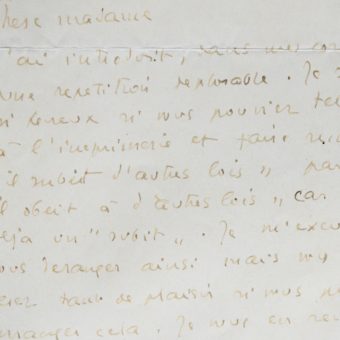 Chère madame
J'ai introduit, dans mes
une répétition déplorable. Je
si vous pouviez
à l'imprimerie et faire
il subit d'autres lois "
il obéit à d'autres lois ", car
déjà un "subit". Je m'
vous déranger ainsi mais
tant de plaisir si vous
arranger cela. Je vous en